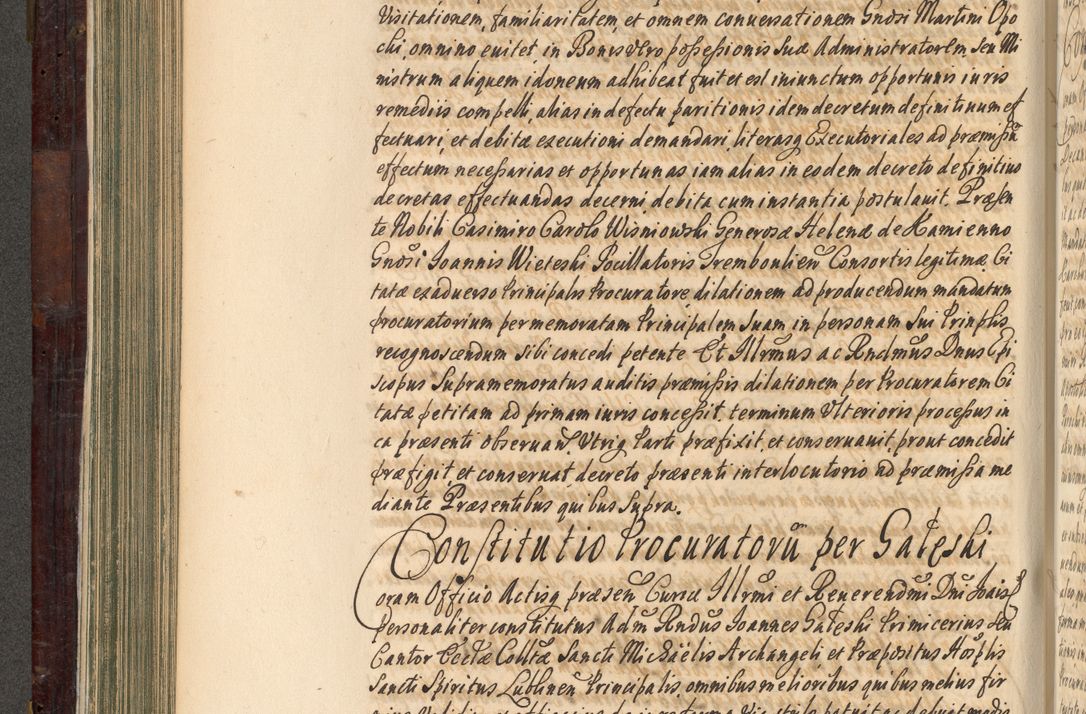 Visitationem, familiaritatem, et omnem conuersationem Gnosi Martini Opo
chi, omnino euitet, in Bonis vero possessionis Suæ Administratorem, seu Mi
nistrum aliquem idoneum adhibeat fuit et est iniunctum opportunis iuris
remediis compelli, alias in defectu paritionis idem decretum definitiuum ef
fectuari, et debitæ executioni demandari, literasq Executoriales ad præmissũ
effectum necessarias et opportunas iam alias in eodem decreto definitiuo
decretas effectuandas decerni, debita cum instantia postulauit. Præsen
te Nobili Casimiro Carolo Wisniowski Generosæ Helenæ de Kamienno
Gnosi Joannis Wieteski Pocillatoris Tremboulieñ Consortis legitimæ Ci
tatæ ex aduerso Principalis Procuratore dilationem ad producendum mandatum
procuratorium per memoratam Principalem Suam in personam Sui Prinplis
recognoscendum sibi concedi petente Et Illrmus ac Rndmus Dnus Epi
scopus Supramemoratus auditis præmissis dilationem per Procuratorem Ci
tatæ petitam ad primam iuris concessit, terminum Vlterioris processus in
ca præsenti obseruañ. Vtriq Parti præfixit, et conseruauit, prout concedit
præfigit, et conseruat, decreto præsenti interlocutorio ad præmissa me
diante Præsentibus quibus Supra.
Constitutio Procuratorũ per Gałęski
Coram Officio Actisq præseñ Curiæ Illrmi et Reuerendmi Dni Joais
Personaliter constitutus Adm Rndus Joannes Gałeski Primicerius seu
Cantor Eccłæ Colltæ Sancti Michäelis Archangeli, et Præpositus Hosplis
Sancti Spiritus Lublineñ Principalis, omnibus melioribus quibus melius fir